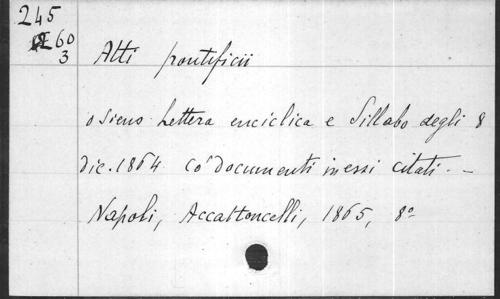 245
E 60
3
Atti pontificii
o sieno Lettera enciclica e Sillabo degli 8
dic. 1864 co' documenti in essi citati. —
Napoli, Accattoncelli, 1865, 8º